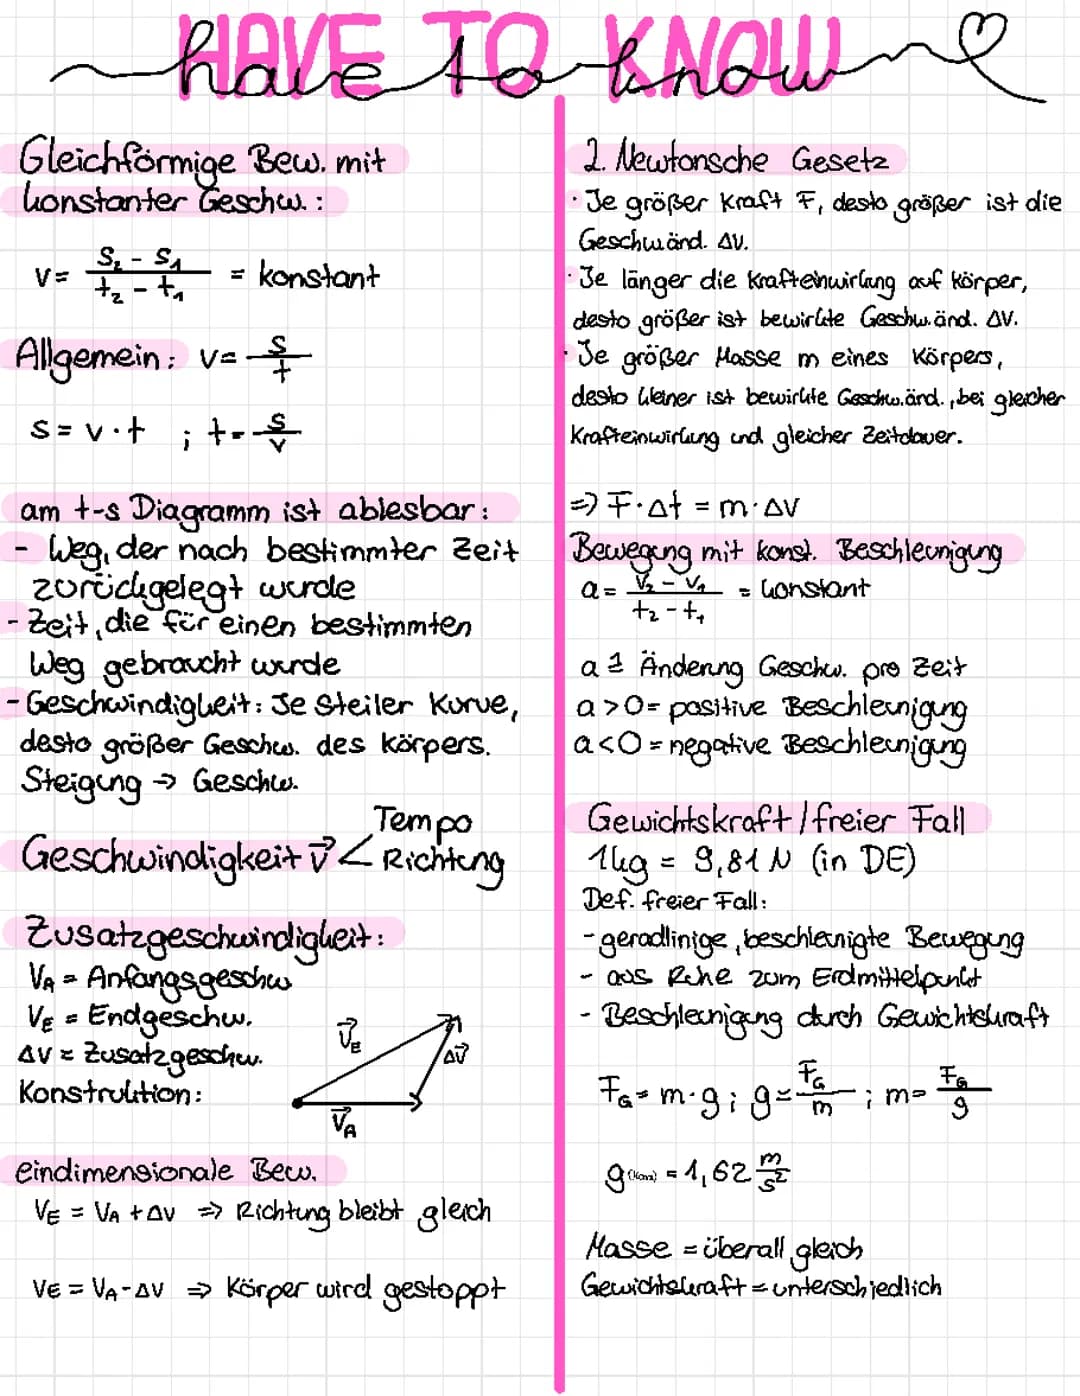 HAVE TO KNOW
have to know
Gleichförmige Bew. mit
konstanter Geschw. :
v = s₂ - s₁ / t₂ - t₁ = konstant
Allgemein: v = s / t
s = v · t ; t = s / v
am t-s Diagramm ist ablesbar:
- Weg, der nach bestimmter Zeit
zurückgelegt wurde
- Zeit, die für einen bestimmten
Weg gebraucht wurde
- Geschwindigkeit: Je steiler Kurve,
desto größer Geschw. des Körpers.
Steigung → Geschw.
Tempo
Geschwindigkeit v⃗ < Richtung
Zusatzgeschwindigkeit:
VA = Anfangsgeschw
VE = Endgeschw.
ΔV = Zusatzgeschw.
Konstruktion:
V⃗E
Δv⃗
V⃗A
eindimensionale Bew.
VE = VA + ΔV ⇒ Richtung bleibt gleich
VE = VA - ΔV ⇒ Körper wird gestoppt
2. Newtonsche Gesetz
· Je größer Kraft F, desto größer ist die
Geschwänd. ΔV.
· Je länger die Krafteinwirkung auf Körper,
desto größer ist bewirkte Geschw.änd. ΔV.
· Je größer Masse m eines Körpers,
desto kleiner ist bewirkte Geschw.änd., bei gleicher
Krafteinwirkung und gleicher Zeitdauer.
⇒ F · Δt = m · ΔV
Bewegung mit konst. Beschleunigung
a = V₂ - V₁ / t₂ - t₁ = konstant
a ≙ Änderung Geschw. pro Zeit
a > 0 = positive Beschleunigung
a < 0 = negative Beschleunigung
Gewichtskraft / freier Fall
1kg = 9,81 N (in DE)
Def. freier Fall:
- geradlinige, beschleunigte Bewegung
- aus Ruhe zum Erdmittelpunkt
- Beschleunigung durch Gewichtskraft
FG = m · g ; g = FG / m ; m = FG / g
g = 1,62 m/s²
Masse = überall gleich
Gewichtskraft = unterschiedlich